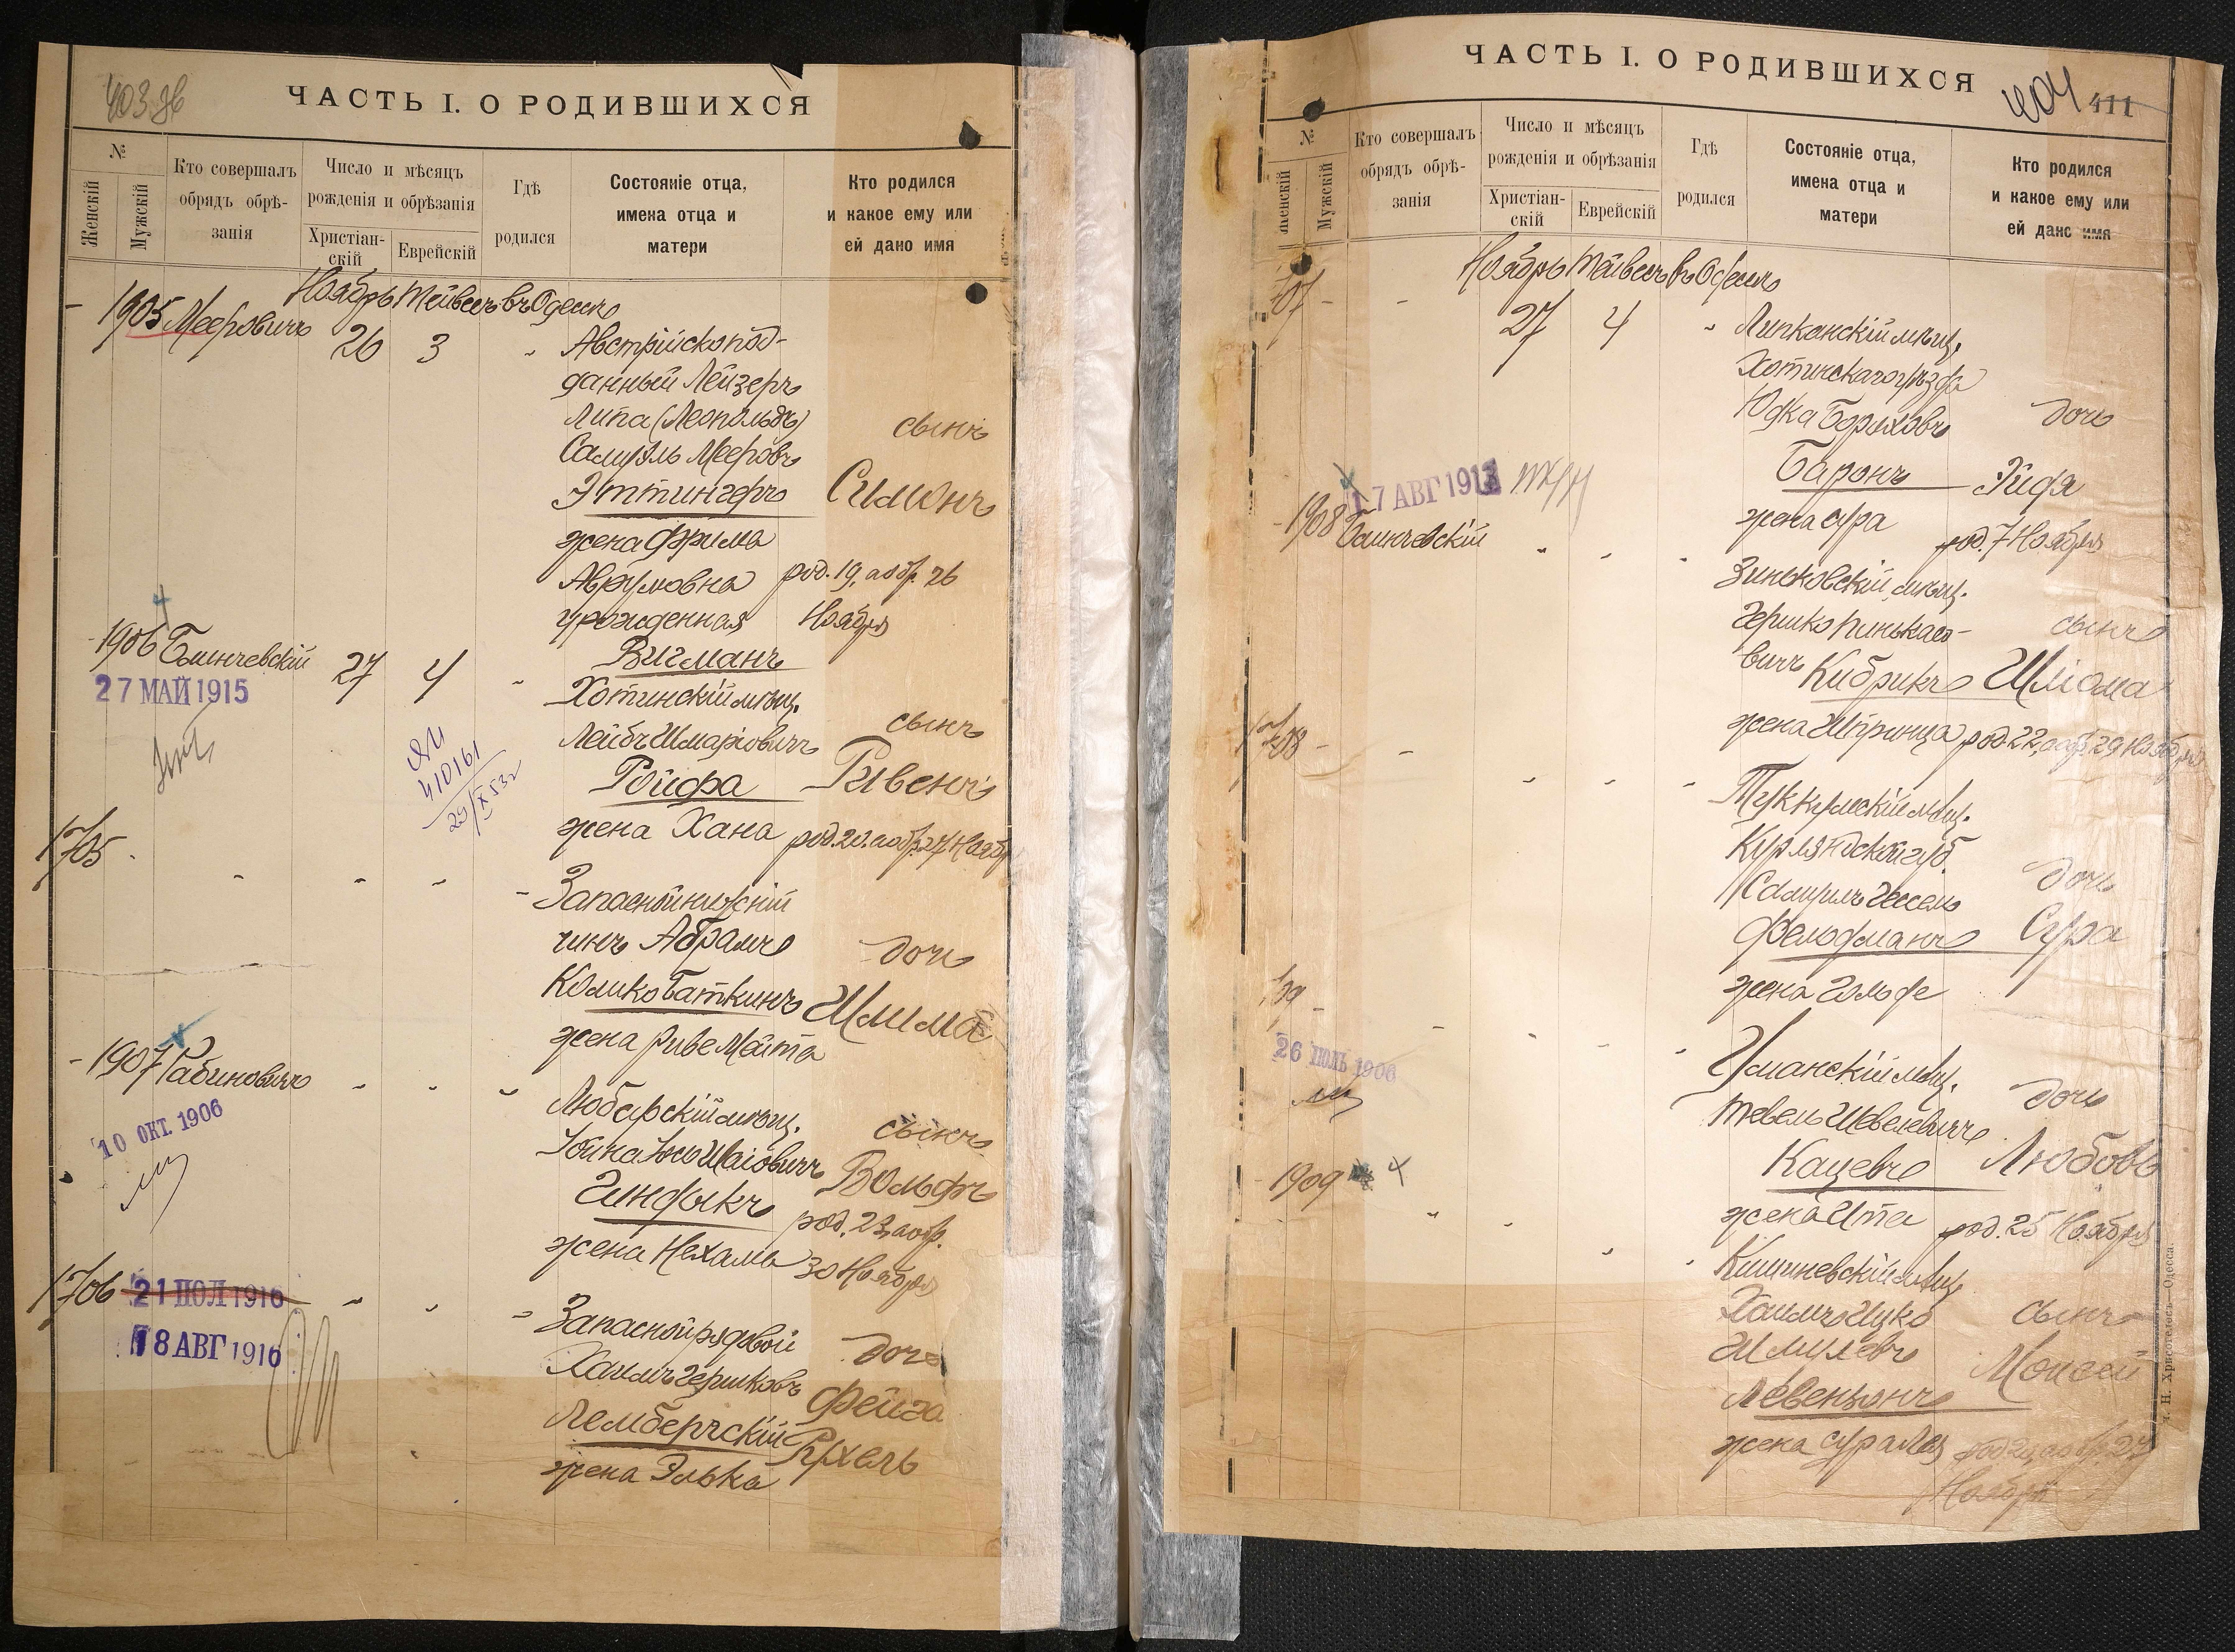 403 об
ЧАСТЬ I. О РОДИВШИХСЯ
№
Женскій
Мужскій
Кто совершалъ
обрядъ обрѣ-
занія
Число и мѣсяцъ
рожденія и обрѣзанія
Христіан-
скій
Еврейскій
Гдѣ
родился
Состояніе отца,
имена отца и
матери
Кто родился
и какое ему или
ей дано имя
Ноябрь Тейвесъ въ Одессѣ
- 1905 Мееровичъ 26 3 "
Австрійскопод-
данный Лейзеръ
Липа (Леопольдъ)
Самуэль Мееровъ
Эттингеръ
жена Фрима
Аврумовна
урожденная
Вигманъ
сынъ
Симонъ
род. 19, а обр. 26
Ноября
- 1906 Блинчевскій 27 4 "
27 МАЙ 1915
410161
29/X 53г
Хотинскій мѣщ.
Лейбъ Шмаріовичъ
Ройфа
жена Хана
сынъ
Рувенъ
род. 20, а обр. 27 Ноябр
1705 - " " " "
Запасной нижній
чинъ Абрамъ
Коликобаткинъ
жена Риве Мойта
дочь
Шлима
- 1907 Рабиновичъ " " "
10 ОКТ. 1906
Любарскій мѣщ.
Шаіовичъ
Гиндыкъ
жена Нехама
сынъ
Вольфъ
род. 23, а обр.
30 Ноября
1706 21 ІЮЛ 1916 " " "
18 АВГ 1916
Запасной рядовой
Хаимъ Гершковъ
Лембергскій
жена Элька
дочь
Фейга
Рухель
404 411
ЧАСТЬ I. О РОДИВШИХСЯ
№
Женскій
Мужскій
Кто совершалъ
обрядъ обрѣ-
занія
Число и мѣсяцъ
рожденія и обрѣзанія
Христіан-
скій
Еврейскій
Гдѣ
родился
Состояніе отца,
имена отца и
матери
Кто родился
и какое ему или
ей дано имя
Ноябрь Тейвесъ въ Одессѣ
707 - - 27 4 "
Липканскій мѣщ.
Хотинскаго уѣзда
Юдка Боруховъ
Баронъ
жена Сура
дочь
Эйдя
род. 7 Ноября
17 АВГ 1913
- 1908 Блинчевскій " " "
Зиньковскій мѣщ.
Гершко Пинькасо-
вичъ Кибрикъ
жена Шпринца
сынъ
Шліома
род. 22, а обр. 29 Ноября
1708 - - " " "
Туккумскій мѣщ.
Курляндской губ.
Самуилъ Гессель
Фельдманъ
жена Гольде
дочь
Сура
709 - - " " "
26 ІЮЛЬ 1906
Уманскій мѣщ.
Тевель Шевелевичъ
Кацевъ
жена Ита
дочь
Любовь
род. 25 Ноября
- 1909 " " " "
Кишиневскій мѣщ.
Хаимъ Ицко
Шмулевъ
Левензонъ
жена Сура Лея
сынъ
Моисей
род. 20, а обр. 27
Ноября
т. Н. Хрисогелосъ—Одесса.